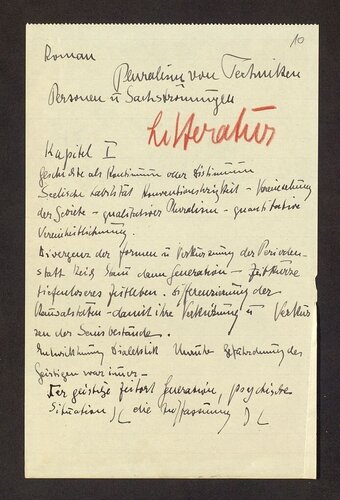 10
Roman
Pluralism von Techniken
Personen u Sachströmungen
Litteratur
Kapitel I
Geschichte als Kontinuum oder Distinuum
Seelische Labilität Konventionslosigkeit – Vereinzelung
der Gebiete – qualitativer Pluralism – quantitative
Vereinheitlichung.
Divergenz der Formen u Verkürzung der Perioden –
statt Reich dann Generation – Zeitkürze
tiefenloseres Zeitleben. Differenzierung der
Kausalketten – damit ihre Verkürzung u Verkür
zen der Seinsbestände.
Entwicklung Dialektik Unruhe Gefährdung des
Geistigen war immer –
Der geistige Zeitort Generation, psychische
Situation )( die Auffassung )(